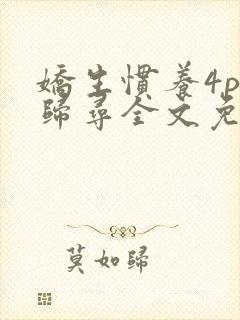 嬌生慣養4p
歸尋全文免
莫如歸